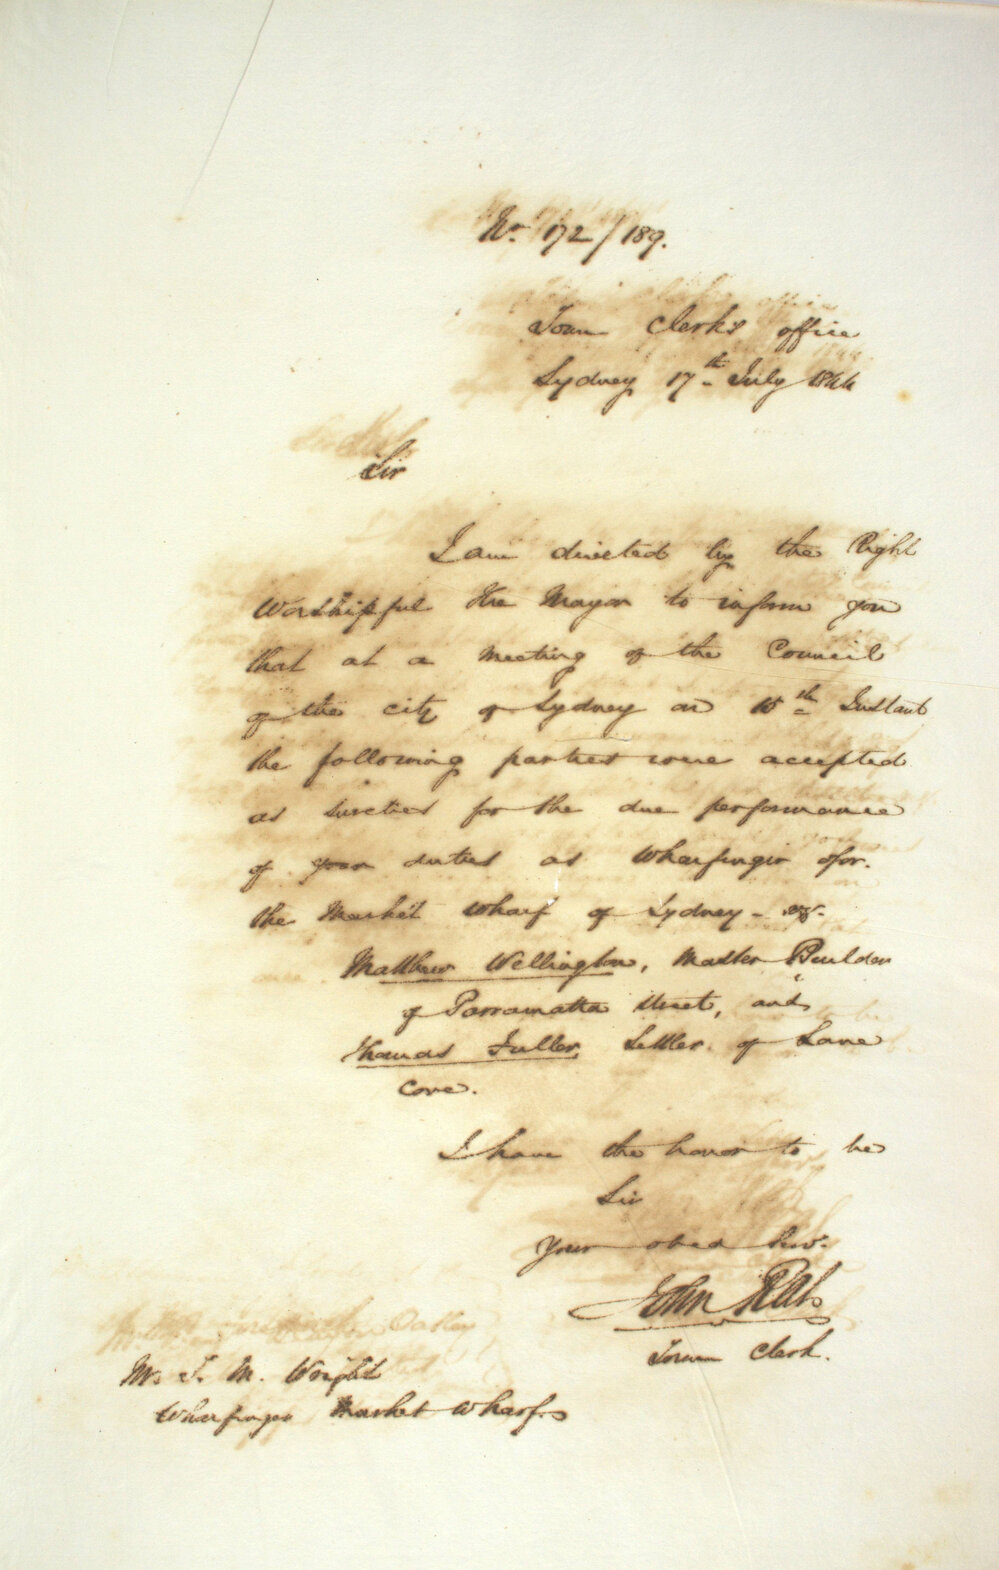 No. 172/189.
Town Clerk's office
Sydney 17th July 1844
Sir
I am directed by the Right
Worshipful the Mayor to inform you
that at a meeting of the Council
of the city of Sydney on 15th Instant
the following parties were accepted
as sureties for the due performance
of your duties as Wharfinger for
the Market Wharf of Sydney -
Matthew Wellington, Master Builder
of Parramatta Street, and
Thomas Fuller, Settler of Lane
Cove.
I have the honor to be
Sir
Your obed Serv.
John
Town Clerk.
Mr. T. M. Wright
Wharfinger Market Wharf